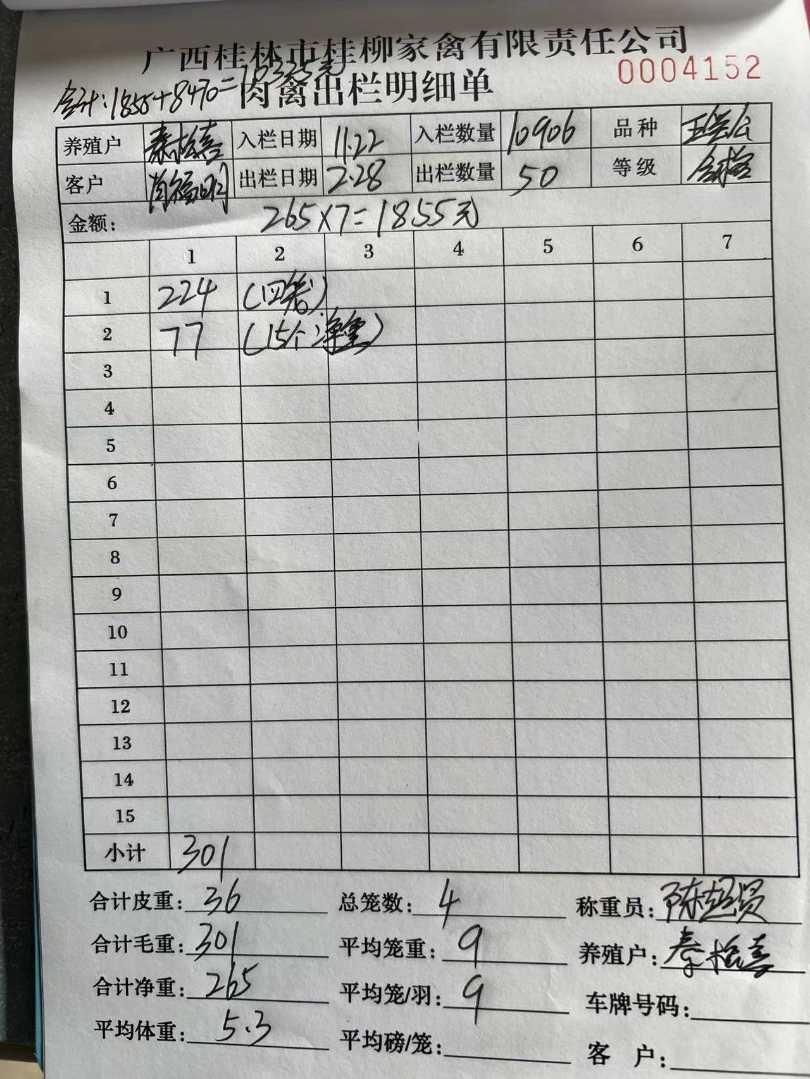 广西桂林市桂柳家禽有限责任公司
合计:1855+8470=10325元
肉禽出栏明细单 0004152
养殖户 秦松喜 入栏日期 11.22 入栏数量 10906 品种
客户 肖福明 出栏日期 2.28 出栏数量 50 等级
金额: 265×7=1855元
1 2 3 4 5 6 7
1 224 (四笼)
2 77 (15个净重)
3
4
5
6
7
8
9
10
11
12
13
14
15
小计 301
合计皮重: 36 总笼数: 4 称重员: 陈超贤
合计毛重: 301 平均笼重: 9 养殖户: 秦松喜
合计净重: 265 平均笼/羽: 9 车牌号码:
平均体重: 5.3 平均磅/笼: 客 户: